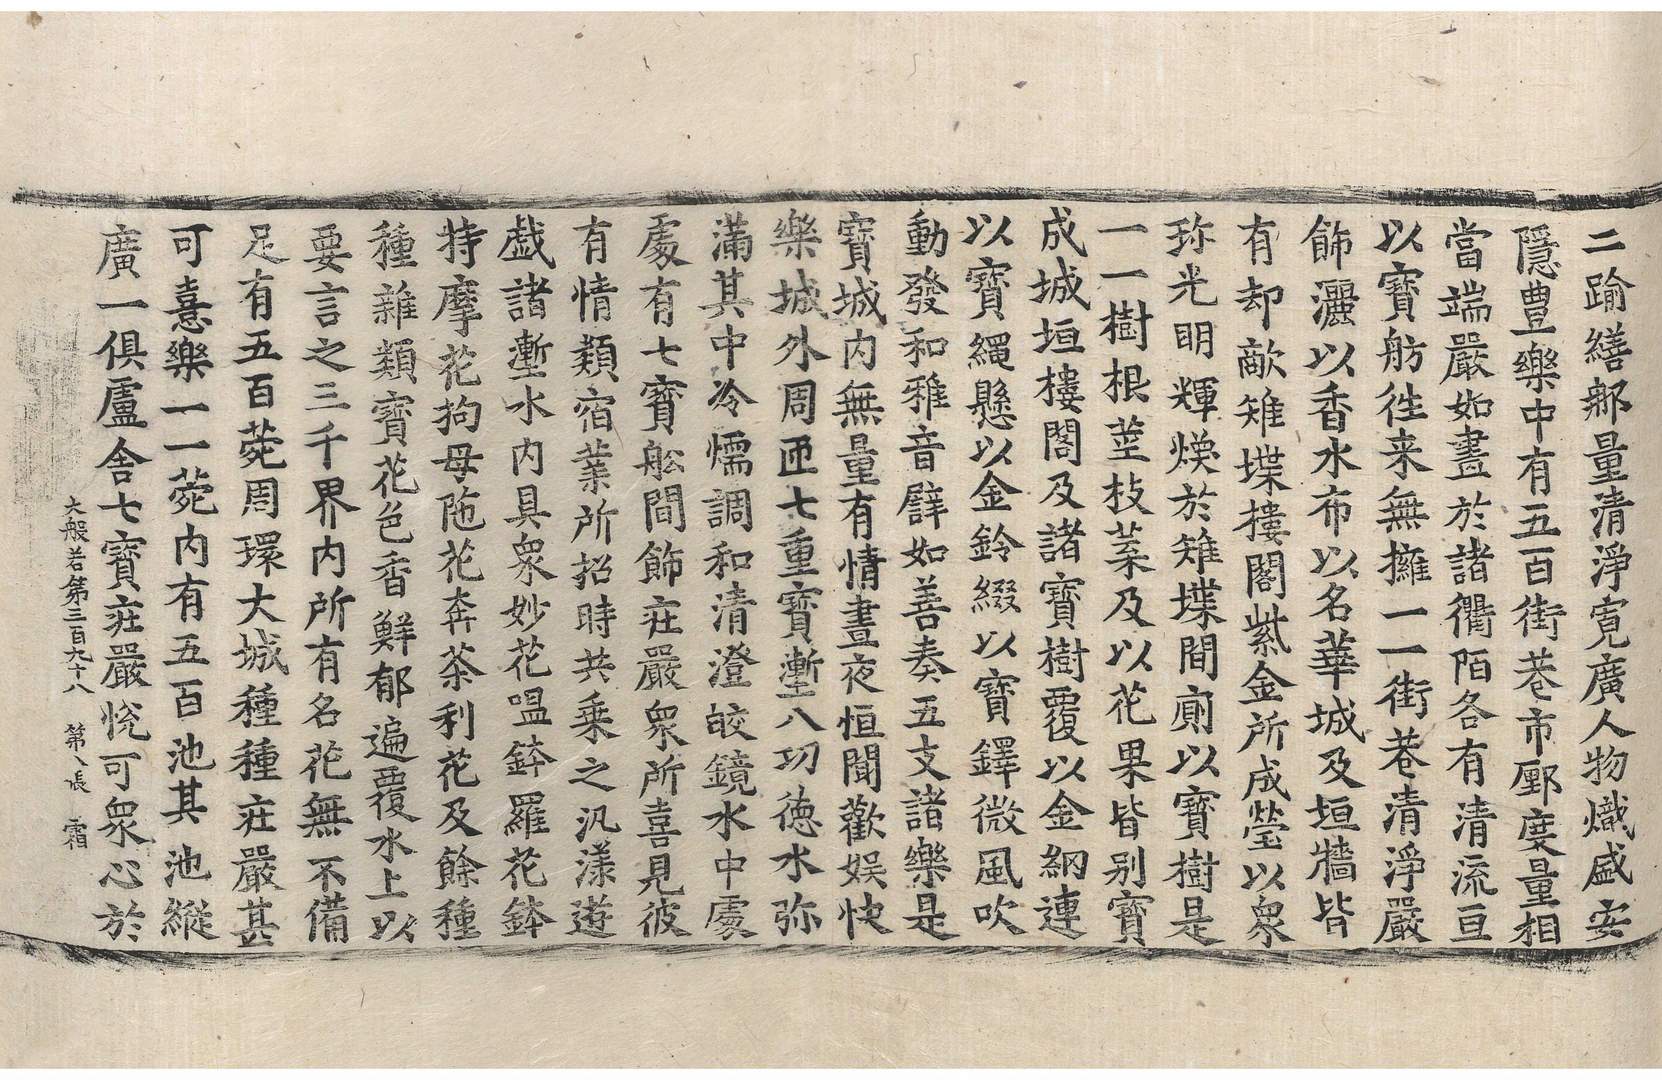 二踰繕那量清淨寬廣人物熾盛安
隱豊樂中有五百街巷市鄽度量相
當端嚴如畫於諸衢陌各有清流亘
以寶舫往来無擁一一街巷清淨嚴
飾灑以香水布以名華城及垣牆皆
有却敵雉堞樓閣紫金所成瑩以衆
珎光明輝煥於雉堞間厠以寶樹是
一一樹根莖枝葉及以花果皆別寶
成城垣樓閣及諸寶樹覆以金網連
以寶繩懸以金鈴綴以寶鐸微風吹
動發和雅音譬如善奏五支諸樂是
寶城内無量有情晝夜恒聞歡娛快
樂城外周匝七重寶壍八功德水弥
滿其中冷煗調和清澄皎鏡水中處
處有七寶舩間飾莊嚴衆所喜見彼
有情類宿業所招時共乗之汎漾遊
戯諸壍水内具衆妙花嗢鉢羅花鉢
特摩花拘母陁花奔荼利花及餘種
種雜類寶花色香鮮郁遍覆水上以
要言之三千界内所有名花無不備
足有五百菀周環大城種種莊嚴甚
可憙樂一一菀内有五百池其池縱
廣一俱盧舍七寶莊嚴悅可衆心於
大般若第三百九十八　第八張　霜